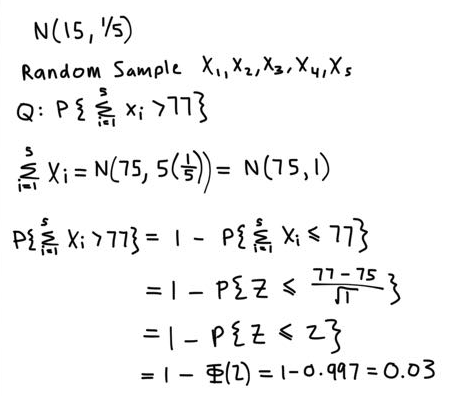 N(15, 1/5)
Random Sample X₁, X₂, X₃, X₄, X₅
Q: P{∑ᵢ₌₁⁵ xᵢ > 77}
∑ᵢ₌₁⁵ Xᵢ = N(75, 5(1/5)) = N(75, 1)
P{∑ᵢ₌₁⁵ Xᵢ > 77} = 1 - P{∑ᵢ₌₁⁵ Xᵢ ≤ 77}
= 1 - P{Z ≤ (77-75)/√1}
= 1 - P{Z ≤ 2}
= 1 - Φ(2) = 1 - 0.997 = 0.03